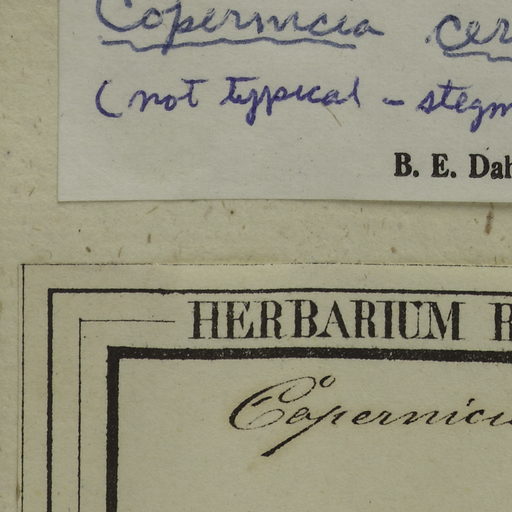 Copernicia cer
(not typical – stegm
B. E. Dah
HERBARIUM R
Copernici